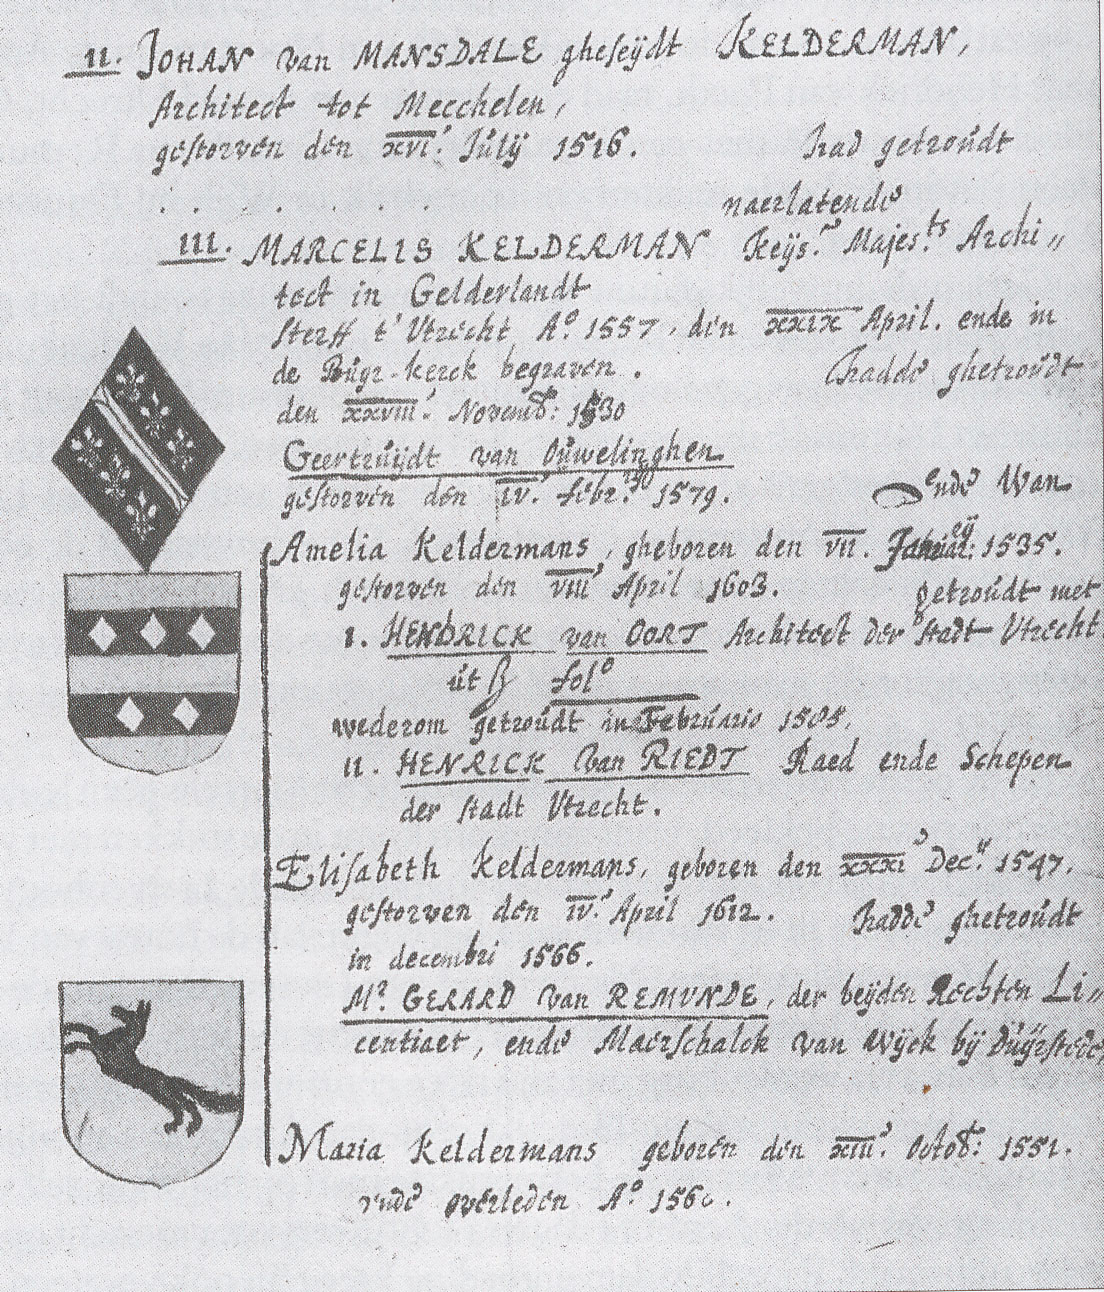 II. JOHAN van MANSDALE gheseÿdt KELDERMAN,
Architect tot Mecchelen,
gestorven den XVI. Julÿ 1516. had getroudt
. . . . . . . . naerlatende
III. MARCELIS KELDERMAN Keÿs.r Majes.ts Archi„
tect in Gelderlandt
sterff t' Utrecht A° 1557, den XXIX April. ende in
de Buyr-kerck begraven. hadde ghetroudt
den XXVIII. Novemb: 1530
Geertruijdt van Ouwelinghen
gestorven den IV. febr. 1579. ende Wan
Amelia Keldermans, gheboren den VII. 1535.
gestorven den VIII April 1603. getroudt met
I. HENDRICK van OORT Architect der stadt Utrecht
ut fol°
wederom getroudt in Februario 1585.
II. HENRICK van RIEDT Raed ende Schepen
der stadt Utrecht.
Elisabeth Keldermans, geboren den XXXI Dec. 1547.
gestorven den IV. April 1612. hadde ghetroudt
in decembri 1566.
Mr. GERARD van REMUNDE, der beÿden Rechten Li„
centiaet, ende Maerschalck van Wÿck bÿ Duÿrstede,
Maria Keldermans geboren den XIII. Octob: 1551.
ende overleden A°